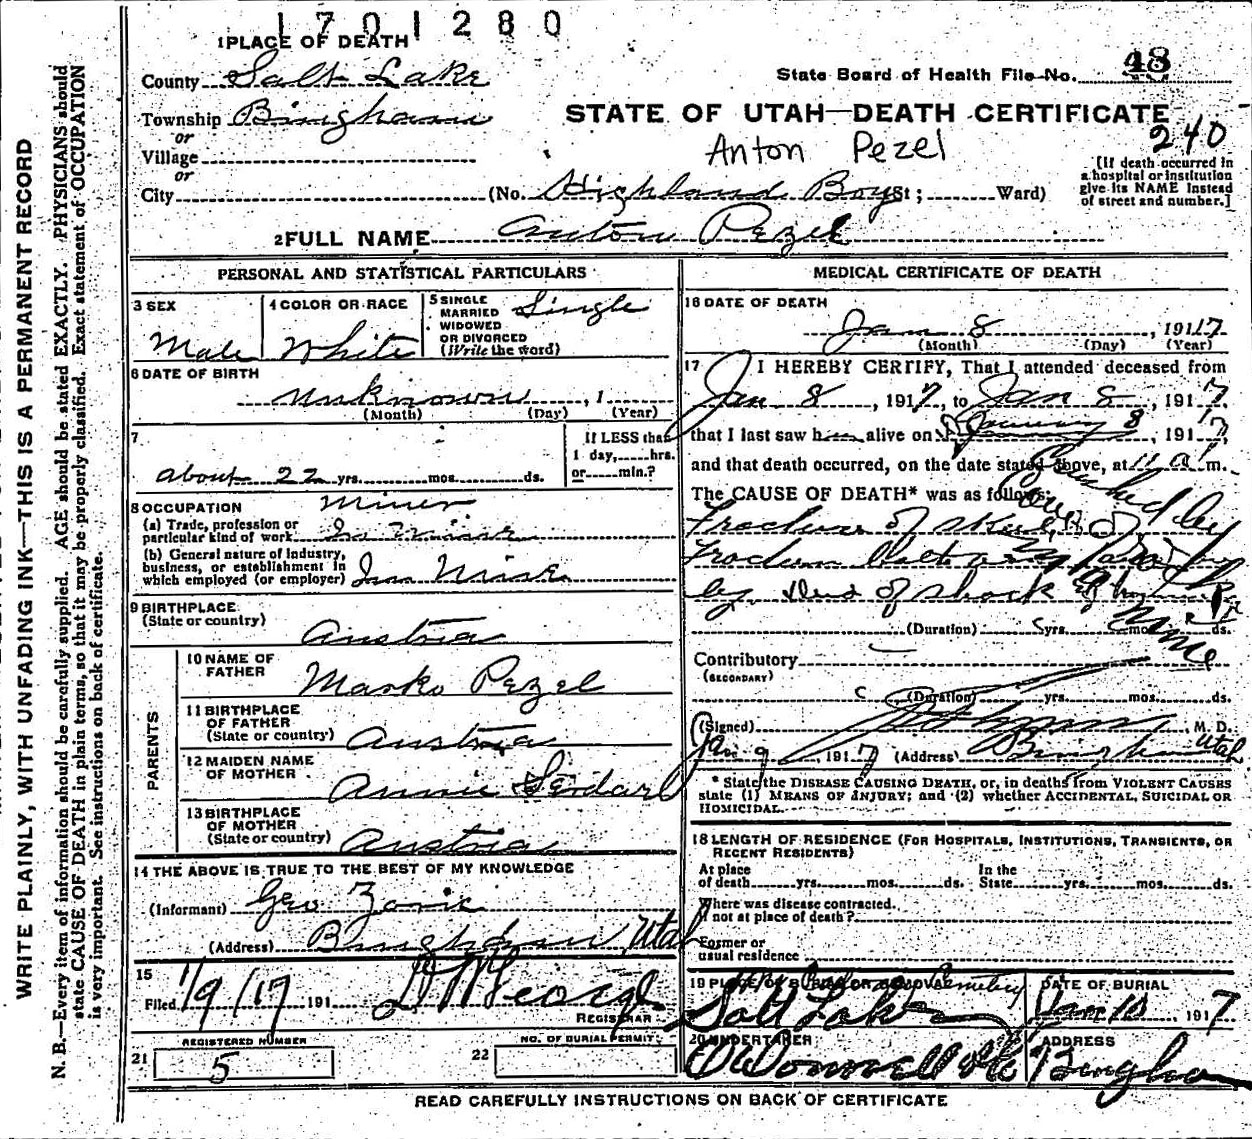 1701280
1 PLACE OF DEATH
County Salt Lake
State Board of Health File No. 48
Township Bingham
STATE OF UTAH—DEATH CERTIFICATE
or
240
Village
Anton Pezel
or
City (No. Highland Boy St; Ward)
[If death occurred in
a hospital or institution
give its NAME instead
of street and number.]
2 FULL NAME Anton Pezel
PERSONAL AND STATISTICAL PARTICULARS
3 SEX
Male
4 COLOR OR RACE
White
5 SINGLE
MARRIED
WIDOWED
OR DIVORCED
(Write the word)
Single
6 DATE OF BIRTH
Unknown, 1
(Month) (Day) (Year)
7
about 22 yrs. mos. ds.
If LESS than
1 day, hrs.
or min.?
8 OCCUPATION
Miner
(a) Trade, profession or
particular kind of work
(b) General nature of industry,
business, or establishment in
which employed (or employer)
9 BIRTHPLACE
(State or country)
Austria
PARENTS
10 NAME OF
FATHER
Marko Pezel
11 BIRTHPLACE
OF FATHER
(State or country) Austria
12 MAIDEN NAME
OF MOTHER
Annie
13 BIRTHPLACE
OF MOTHER
(State or country) Austria
14 THE ABOVE IS TRUE TO THE BEST OF MY KNOWLEDGE
(Informant) Geo Zonic
(Address) Bingham, Utah
15
Filed 1/9/17 191
REGISTRAR
REGISTERED NUMBER
21 5
NO. OF BURIAL PERMIT
22
MEDICAL CERTIFICATE OF DEATH
16 DATE OF DEATH
Jan 8, 1917
(Month) (Day) (Year)
17 I HEREBY CERTIFY, That I attended deceased from
Jan 8, 1917, to Jan 8, 1917
that I last saw h alive on January 8, 1917,
and that death occurred, on the date stated above, at 11 a m.
The CAUSE OF DEATH* was as follows:
Crushed by
Fracture of skull
by Died of shock
mine
(Duration) yrs. mos. ds.
Contributory
(SECONDARY)
(Duration) yrs. mos. ds.
(Signed) , M. D.
Jan 9, 1917 (Address) Bingham Utah
* State the DISEASE CAUSING DEATH, or, in deaths from VIOLENT CAUSES
state (1) MEANS OF INJURY; and (2) whether ACCIDENTAL, SUICIDAL OR
HOMICIDAL.
18 LENGTH OF RESIDENCE (FOR HOSPITALS, INSTITUTIONS, TRANSIENTS, OR
RECENT RESIDENTS)
At place
of death yrs. mos. ds.
In the
State yrs. mos. ds.
Where was disease contracted.
if not at place of death?
Former or
usual residence
19 PLACE OF BURIAL OR REMOVAL
Cemetery
Salt Lake
DATE OF BURIAL
Jan 10 1917
20 UNDERTAKER
O'Donnell & Co
ADDRESS
Bingham
READ CAREFULLY INSTRUCTIONS ON BACK OF CERTIFICATE
WRITE PLAINLY, WITH UNFADING INK—THIS IS A PERMANENT RECORD
N. B.—Every item of information should be carefully supplied. AGE should be stated EXACTLY. PHYSICIANS should
state CAUSE OF DEATH in plain terms, so that it may be properly classified. Exact statement of OCCUPATION
is very important. See instructions on back of certificate.